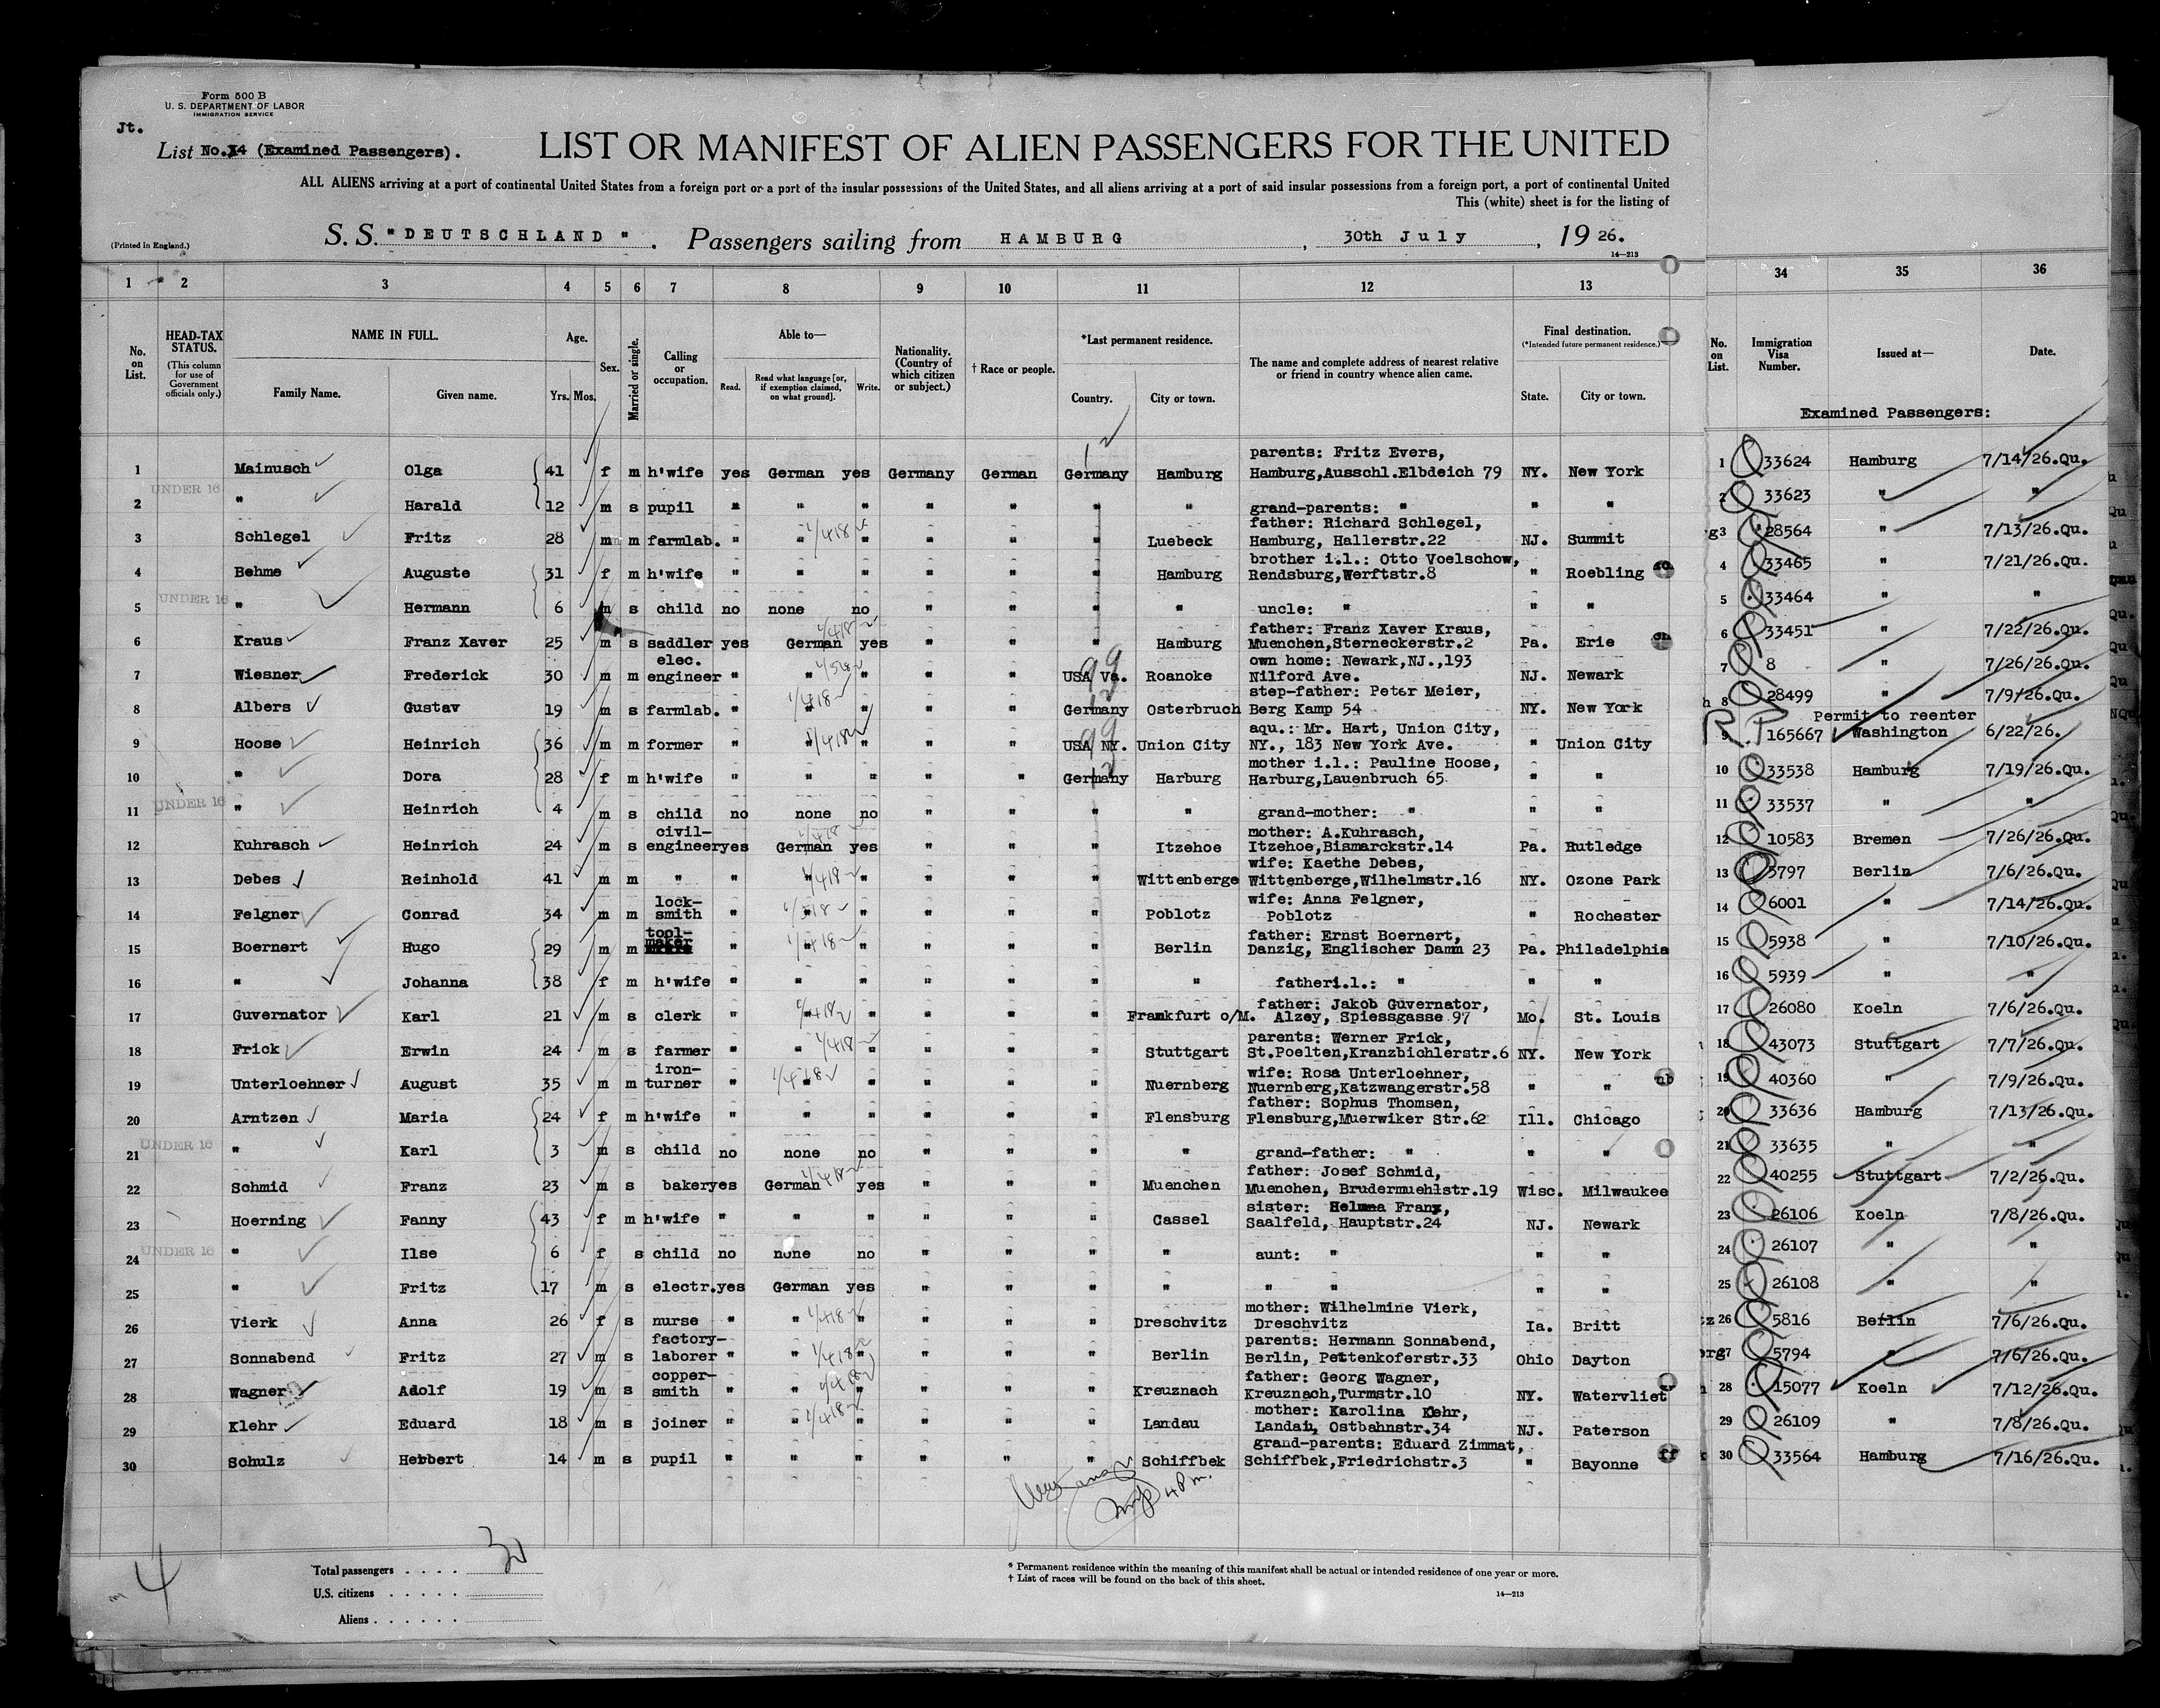 Form 500 B
U. S. DEPARTMENT OF LABOR
IMMIGRATION SERVICE
Jt.
List No. 14 (Examined Passengers).
LIST OR MANIFEST OF ALIEN PASSENGERS FOR THE UNITED
ALL ALIENS arriving at a port of continental United States from a foreign port or a port of the insular possessions of the United States, and all aliens arriving at a port of said insular possessions from a foreign port, a port of continental United
This (white) sheet is for the listing of
(Printed in England.)
S. S. "DEUTSCHLAND". Passengers sailing from HAMBURG, 30th July, 19 26.
14—213
1 2 3 4 5 6 7 8 9 10 11 12 13 34 35 36
No. on List.
HEAD-TAX STATUS. (This column for use of Government officials only.)
NAME IN FULL. Family Name. Given name.
Age. Yrs. Mos.
Sex.
Married or single.
Calling or occupation.
Able to— Read. Read what language [or, if exemption claimed, on what ground]. Write.
Nationality. (Country of which citizen or subject.)
† Race or people.
*Last permanent residence. Country. City or town.
The name and complete address of nearest relative or friend in country whence alien came.
Final destination. (*Intended future permanent residence.) State. City or town.
No. on List.
Immigration Visa Number.
Issued at—
Date.
Examined Passengers:
parents: Fritz Evers,
1 Mainusch Olga 41 f m h'wife yes German yes Germany German Germany Hamburg Hamburg,Ausschl.Elbdeich 79 NY. New York 1 33624 Hamburg 7/14/26.Qu.
UNDER 16
2 " Harald 12 m s pupil " " " " " " " grand-parents: " " " 2 33623 " "
father: Richard Schlegel,
3 Schlegel Fritz 28 m m farmlab. " " " " " " Luebeck Hamburg, Hallerstr.22 NJ. Summit 3 28564 " 7/13/26.Qu.
brother i.l.: Otto Voelschow,
4 Behme Auguste 31 f m h'wife " " " " " " Hamburg Rendsburg,Werftstr.8 " Roebling 4 33465 " 7/21/26.Qu.
UNDER 16
5 " Hermann 6 m s child no none no " " " " uncle: " " " 5 33464 " "
father: Franz Xaver Kraus,
6 Kraus Franz Xaver 25 m s saddler yes German yes " " " Hamburg Muenchen,Sterneckerstr.2 Pa. Erie 6 33451 " 7/22/26.Qu.
elec. own home: Newark,NJ.,193
7 Wiesner Frederick 30 m m engineer " " " " " USA Va. Roanoke Nilford Ave. NJ. Newark 7 8 " 7/26/26.Qu.
step-father: Peter Meier,
8 Albers Gustav 19 m s farmlab. " " " " " Germany Osterbruch Berg Kamp 54 NY. New York 8 28499 " 7/9/26.Qu.
aqu.: Mr. Hart, Union City, R.P. Permit to reenter
9 Hoose Heinrich 36 m m former " " " " " USA NY. Union City NY., 183 New York Ave. " Union City 9 165667 Washington 6/22/26.
mother i.l.: Pauline Hoose,
10 " Dora 28 f m h'wife " " " " " Germany Harburg Harburg,Lauenbruch 65 " " 10 33538 Hamburg 7/19/26.Qu.
UNDER 16
11 " Heinrich 4 m s child no none no " " " " grand-mother: " " " 11 33537 " "
civil- mother: A.Kuhrasch,
12 Kuhrasch Heinrich 24 m s engineer yes German yes " " " Itzehoe Itzehoe,Bismarckstr.14 Pa. Rutledge 12 10583 Bremen 7/26/26.Qu.
wife: Kaethe Debes,
13 Debes Reinhold 41 m m " " " " " " " Wittenberge Wittenberge,Wilhelmstr.16 NY. Ozone Park 13 5797 Berlin 7/6/26.Qu.
lock- wife: Anna Felgner,
14 Felgner Conrad 34 m m smith " " " " " " Poblotz Poblotz " Rochester 14 6001 " 7/14/26.Qu.
tool- father: Ernst Boernert,
15 Boernert Hugo 29 m m maker " " " " " " Berlin Danzig, Englischer Damm 23 Pa. Philadelphia 15 5938 " 7/10/26.Qu.
16 " Johanna 38 f m h'wife " " " " " " " fatheri.l.: " " " 16 5939 " "
father: Jakob Guvernator,
17 Guvernator Karl 21 m s clerk " " " " " " Frankfurt o/M. Alzey, Spiessgasse 97 Mo. St. Louis 17 26080 Koeln 7/6/26.Qu.
parents: Werner Frick,
18 Frick Erwin 24 m s farmer " " " " " " Stuttgart St.Poelten,Kranzbichlerstr.6 NY. New York 18 43073 Stuttgart 7/7/26.Qu.
iron- wife: Rosa Unterloehner,
19 Unterloehner August 35 m m turner " " " " " " Nuernberg Nuernberg,Katzwangerstr.58 " " 19 40360 " 7/9/26.Qu.
father: Sophus Thomsen,
20 Arntzen Maria 24 f m h'wife " " " " " " Flensburg Flensburg,Muerwiker Str.62 Ill. Chicago 20 33636 Hamburg 7/13/26.Qu.
UNDER 16
21 " Karl 3 m s child no none no " " " " grand-father: " " " 21 33635 " "
father: Josef Schmid,
22 Schmid Franz 23 m s baker yes German yes " " " Muenchen Muenchen, Brudermuehlstr.19 Wisc. Milwaukee 22 40255 Stuttgart 7/2/26.Qu.
sister: Helmma Franz,
23 Hoerning Fanny 43 f m h'wife " " " " " " Cassel Saalfeld, Hauptstr.24 NJ. Newark 23 26106 Koeln 7/8/26.Qu.
UNDER 16
24 " Ilse 6 f s child no none no " " " " aunt: " " " 24 26107 " "
25 " Fritz 17 m s electr. yes German yes " " " " " " " " 25 26108 " "
mother: Wilhelmine Vierk,
26 Vierk Anna 26 f s nurse " " " " " " Dreschvitz Dreschvitz Ia. Britt 26 5816 Berlin 7/6/26.Qu.
factory- parents: Hermann Sonnabend,
27 Sonnabend Fritz 27 m s laborer " " " " " " Berlin Berlin, Pettenkoferstr.33 Ohio Dayton 27 5794 " 7/6/26.Qu.
copper- father: Georg Wagner,
28 Wagner Adolf 19 m s smith " " " " " " Kreuznach Kreuznach,Turmstr.10 NY. Watervliet 28 15077 Koeln 7/12/26.Qu.
mother: Karolina Kehr,
29 Klehr Eduard 18 m s joiner " " " " " " Landau Landau, Ostbahnstr.34 NJ. Paterson 29 26109 " 7/8/26.Qu.
grand-parents: Eduard Zimmat,
30 Schulz Hebbert 14 m s pupil " " " " " " Schiffbek Schiffbek,Friedrichstr.3 " Bayonne 30 33564 Hamburg 7/16/26.Qu.
4
Total passengers . . . . 30
U.S. citizens . . . . .
Aliens . . . . . .
* Permanent residence within the meaning of this manifest shall be actual or intended residence of one year or more.
† List of races will be found on the back of this sheet.
14—213